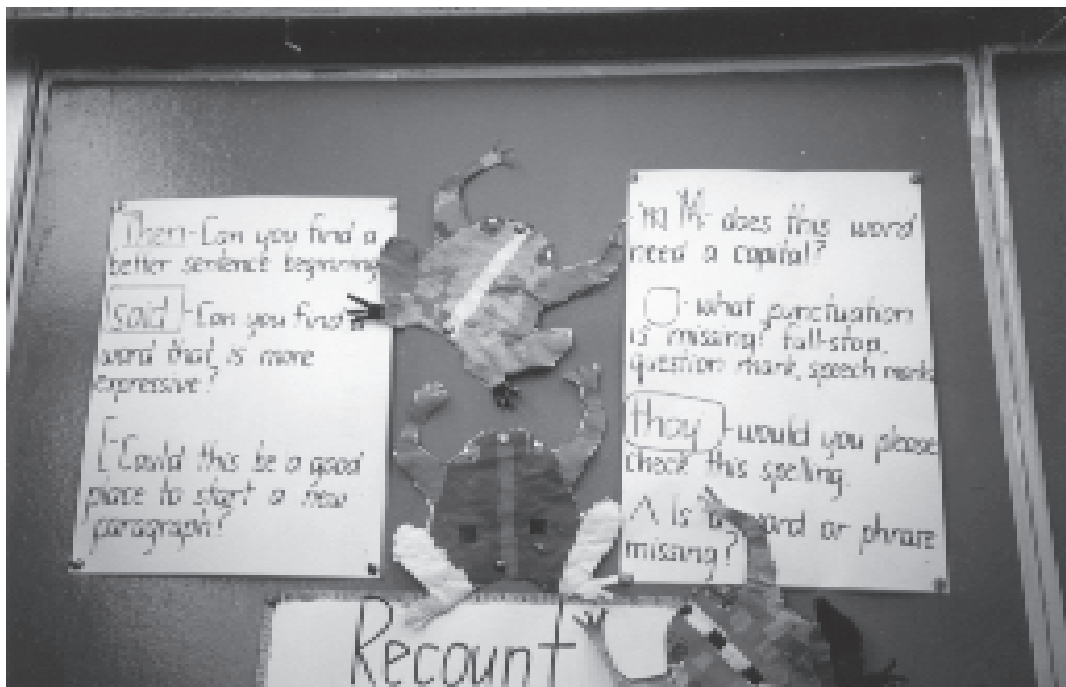 Then - Can you find a
better sentence beginning
said - Can you find a
word that is more
expressive?
[ - Could this be a good
place to start a new
paragraph?
m M - does this word
need a capital?
◯ - what punctuation
is missing? full-stop,
question mark, speech marks
thay - would you please
check this spelling.
^ Is a word or phrase
missing?
Recount